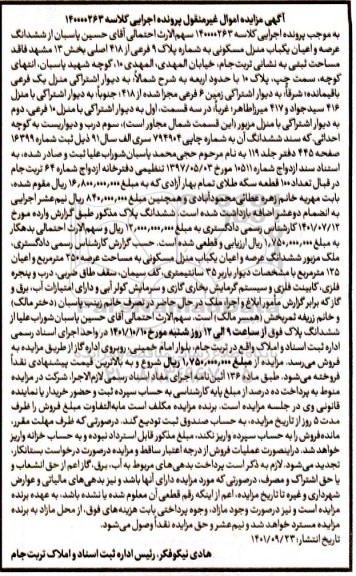 آگهی مزایده اموال غیرمنقول پرونده اجرایی کلاسه ۱۴۰۰۰۰۲۶۳
به موجب پرونده اجرایی کلاسه ۱۴۰۰۰۰۲۶۳ سهم‌الارث احتمالی آقای حسین پاسبان از ششدانگ
عرصه و اعیان یکباب منزل مسکونی به شماره پلاک ۹ فرعی از ۴۱۸ اصلی بخش ۱۳ مشهد فاقد
مساحت ثبتی به نشانی تربت‌جام، خیابان المهدی، المهدی ۱۰، کوچه شهید پاسبان، انتهای
کوچه، سمت چپ، پلاک ۱۰ با حدود اربعه به شرح شمالاً: به دیوار اشتراکی منزل یک فرعی
باقیمانده؛ شرقاً: به دیوار اشتراکی زمین ۶ فرعی مجزا شده از ۴۱۸؛ جنوباً: به دیوار اشتراکی با منزل
۴۱۶ سیدجواد و ۴۱۷ میرزاطاهر؛ غرباً: در سه قسمت، اول به دیوار اشتراکی با منزل ۱۰ فرعی، دوم
به دیوار اشتراکی با منزل مزبور (این قسمت شمال مجاور است)، سوم درب و دیواریست به کوچه
احداثی، که سند ششدانگ آن به شماره چاپی ۷۹۴۹۰۴ سری الف سال ۹۱ ذیل ثبت شماره ۱۶۳۹۹
صفحه ۴۴۵ دفتر جلد ۱۱۹ به نام مرحوم حجی‌محمد پاسبان‌شوراب‌علیا ثبت و صادر شده، به
استناد سند ازدواج شماره ۱۰۵۱۱ مورخ ۱۳۹۷/۰۵/۰۳ تنظیمی دفترخانه ازدواج شماره ۶۴ تربت جام
در قبال تعداد ۱۰۰ قطعه سکه طلای تمام بهار آزادی که به مبلغ ۱۶,۸۰۰,۰۰۰,۰۰۰ ریال مقوم شده،
بابت مهریه خانم زهره عطائی محمودآبادی و همچنین مبلغ ۸۴۰,۰۰۰,۰۰۰ ریال نیم‌عشر اجرایی
به انضمام دوعشر اضافه بازداشت شده است. ششدانگ پلاک مذکور طبق گزارش وارده مورخ
۱۴۰۱/۰۷/۱۲ کارشناس رسمی دادگستری به مبلغ ۱۲,۰۰۰,۰۰۰,۰۰۰ ریال و سهم‌الارث احتمالی بدهکار
به مبلغ ۱,۷۵۰,۰۰۰,۰۰۰ ریال ارزیابی و قطعی شده است. حسب گزارش کارشناس رسمی دادگستری،
ملک مزبور ششدانگ عرصه و اعیان یکباب منزل مسکونی به مساحت عرصه ۲۵۰ مترمربع و اعیان
۱۳۵ مترمربع با مشخصات دیوار باربر ۳۵ سانتیمتری، کف سیمان، سقف طاق ضربی، درب و پنجره
فلزی، کابینت فلزی و سیستم گرمایش بخاری گازی و سرمایش کولر آبی و دارای امتیازات آب، برق و
گاز که برابر گزارش مأمور ابلاغ و اجرا، ملک در حال حاضر در تصرف خانم زینب پاسبان (دختر مالک)
و خانم زریفه تمریخی (همسر مالک) است. سهم‌الارث احتمالی آقای حسین پاسبان‌شوراب‌علیا از
ششدانگ پلاک فوق از ساعت ۹ الی ۱۲ روز شنبه مورخ ۱۴۰۱/۱۰/۱۰ در واحد اجرای اسناد رسمی
اداره ثبت اسناد و املاک واقع در تربت جام، بلوار امام خمینی، روبروی اداره گاز از طریق مزایده به
فروش می‌رسد. مزایده از مبلغ ۱,۷۵۰,۰۰۰,۰۰۰ ریال شروع و به بالاترین قیمت پیشنهادی نقداً
فروخته می‌شود. طبق ماده ۱۳۶ آئین‌نامه اجرای مفاد اسناد رسمی لازم‌الاجرا، شرکت در مزایده
منوط به پرداخت ده درصد از مبلغ پایه کارشناسی به حساب سپرده ثبت و حضور خریدار یا نماینده
قانونی وی در جلسه مزایده است. برنده مزایده مکلف است مابه‌التفاوت مبلغ فروش را ظرف
مدت ۵ روز از تاریخ مزایده، به حساب صندوق ثبت تودیع کند. درصورتی که ظرف مهلت مقرر،
مانده فروش را به حساب سپرده واریز نکند، مبلغ مذکور قابل استرداد نبوده و به حساب خزانه واریز
خواهد شد. دراینصورت عملیات فروش از درجه اعتبار ساقط و مزایده درصورت درخواست بستانکار،
تجدید می‌شود. لازم به ذکر است پرداخت بدهی‌های مربوط به آب، برق، گاز اعم از حق انشعاب و
یا حق اشتراک و مصرف، درصورتی که مورد مزایده دارای آنها باشد و نیز بدهی‌های مالیاتی و عوارض
شهرداری و غیره تا تاریخ مزایده، اعم از اینکه رقم قطعی آن معلوم شده یا نشده باشد، به عهده برنده
مزایده است و نیز درصورت وجود مازاد، وجوه پرداختی بابت هزینه‌های فوق، از محل مازاد به برنده
مزایده مسترد خواهد شد و نیم‌عشر و حق مزایده نقداً وصول می‌شود.
تاریخ انتشار: ۱۴۰۱/۰۹/۲۳
هادی نیکوفکر، رئیس اداره ثبت اسناد و املاک تربت جام